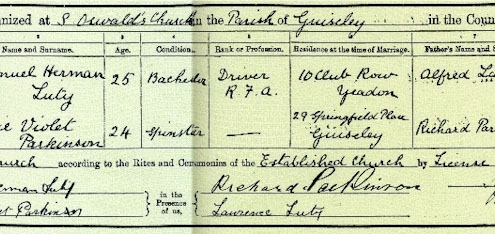 nized at S. Oswald's Church in the Parish of Guiseley in the Coun
2 3 4 5 6 7
Name and Surname. Age. Condition. Rank or Profession. Residence at the time of Marriage. Father's Name and S
nuel Herman Luty 25 Bachelor Driver R.F.A. 10 Club Row Yeadon Alfred Lu
e Violet Parkinson 24 Spinster — 29 Springfield Place Guiseley Richard Par
hurch according to the Rites and Ceremonies of the Established Church by License
erman Luty in the Presence of us, Richard Parkinson
et Parkinson Lawrence Luty